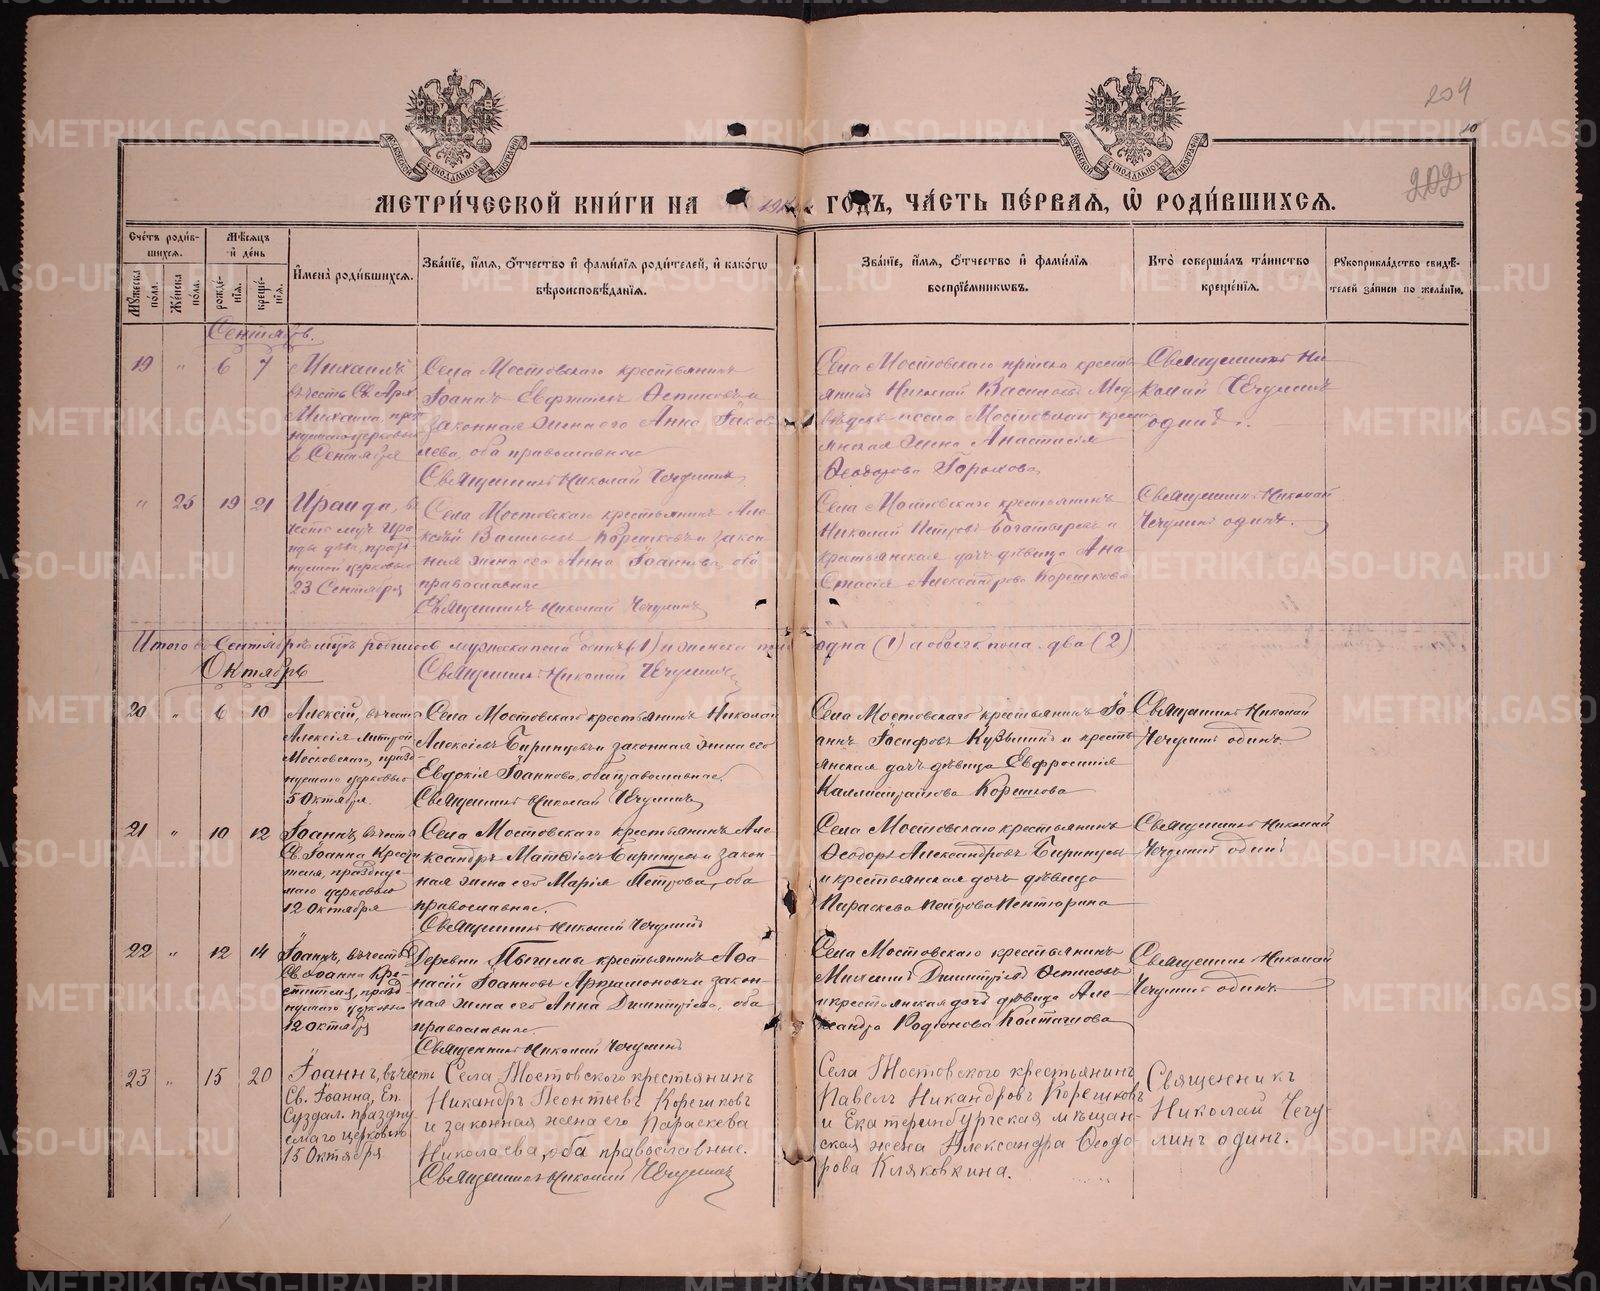 204
10
202
МОСКОВСКОЙ СѴНОДАЛЬНОЙ ТИПОГРАФІИ
МОСКОВСКОЙ СѴНОДАЛЬНОЙ ТИПОГРАФІИ
МЕТРИ́ЧЕСКОЙ КНИ́ГИ НА 191 ГО́ДЪ, ЧА́СТЬ ПЕ́РВАЯ, Ѡ҆ РОДИ́ВШИХСЯ.
Сче́тъ роди́вшихся.
Мꙋ́жеска по́ла.
Же́нска по́ла.
Мѣ́сяцъ и҆ де́нь
рожде́нїя.
креще́нїя.
И҆мена̀ роди́вшихся.
Зва́нїе, и҆́мя, ѻ҆́тчество и҆ фами́лїя роди́телей, и҆ како́гѡ
вѣроисповѣ́данїя.
Зва́нїе, и҆́мя, ѻ҆́тчество и҆ фами́лїя
воспрїе́мникѡвъ.
Кто̀ соверша́лъ та́инство
креще́нїя.
Рꙋкоприкла́дство свидѣ́-
телей за́писи по жела́нїю.
Сентябрь.
19 " 6 7
Михаилъ
въ честь Св. Арх.
Михаила, праз
днуемаго церковью
6 Сентября
Села Мостовскаго крестьянинъ
Іоаннъ Осиповъ и
законная жена его Анна Іаков
лева, оба православные
Священникъ Николай Чечулинъ
Села Мостовскаго крестья
янинъ Николай Васильевъ
села Мостовскаго кресть
янская жена Анастасія
Ѳеодорова
Священникъ Ни
колай Чечулинъ
одинъ.
" 25 19 21
Ираида, въ
честь муч. Ира
иды дѣвы, празд
нуемой церковью
23 Сентября
Села Мостовскаго крестьянинъ Але
ксѣй Васильевъ Корешковъ и закон
ная жена его Анна Іоаннова, оба
православные
Священникъ Николай Чечулинъ
Села Мостовскаго крестьянинъ
Николай Петровъ Богатыревъ и
крестьянская дочь дѣвица Ана
стасія Александрова Корешкова
Священникъ Николай
Чечулинъ одинъ.
Итого въ Сентябрѣ мцѣ родилось мужеска пола одинъ (1) и женска пола одна (1) а обоего пола два (2)
Октябрь
Священникъ Николай Чечулинъ
20 " 6 10
Алексій, въ честь
Алексія митроп.
Московскаго, празд
нуемаго церковью
5 Октября
Села Мостовскаго крестьянинъ Николай
Алексіевъ Биринцевъ и законная жена его
Евдокія Іоаннова, оба православные.
Священникъ Николай Чечулинъ
Села Мостовскаго крестьянинъ Іо
аннъ Іосифовъ Кузьминъ и кресть
янская дочь дѣвица Евфросинія
Каллистратова Корешкова
Священникъ Николай
Чечулинъ одинъ.
21 " 10 12
Іоаннъ, въ честь
Св. Іоанна Крести
теля, праздну
емаго церковью
12 Октября
Села Мостовскаго крестьянинъ Але
ксандръ Матѳіевъ Биринцевъ и закон-
ная жена его Марія Петрова, оба
православные.
Священникъ Николай Чечулинъ
Села Мостовскаго крестьянинъ
Ѳеодоръ Александровъ Биринцевъ
и крестьянская дочь дѣвица
Параскева Петрова Пентюрина
Священникъ Николай
Чечулинъ одинъ
22 " 12 14
Іоаннъ, въ честь
Св. Іоанна Кре-
стителя, празд
нуемаго церковью
12 Октября
Деревни крестьянинъ Аѳа-
насій Іоанновъ Артамоновъ и закон-
ная жена его Анна Димитріева, оба
православные.
Священникъ Николай Чечулинъ
Села Мостовскаго крестьянинъ
Димитріевъ Осиповъ
и крестьянская дочь дѣвица Але
ксандра Родіонова Колташова
Священникъ Николай
Чечулинъ одинъ.
23 " 15 20
Іоаннъ, въ честь
Св. Іоанна, Еп.
Суздал. праздну
емаго церковью
15 Октября
Села Мостовского крестьянинъ
Никандръ Леонтьевъ Корешковъ
и законная жена его Параскева
Николаева, оба православные.
Священникъ Николай Чечулинъ
Села Мостовского крестьянинъ
Павелъ Никандровъ Корешковъ
и Екатеринбургская мѣщан-
ская жена Александра Ѳеодо-
рова Кляковкина.
Священникъ
Николай Чечу-
линъ одинъ.
METRIKI.GASO-URAL.RU